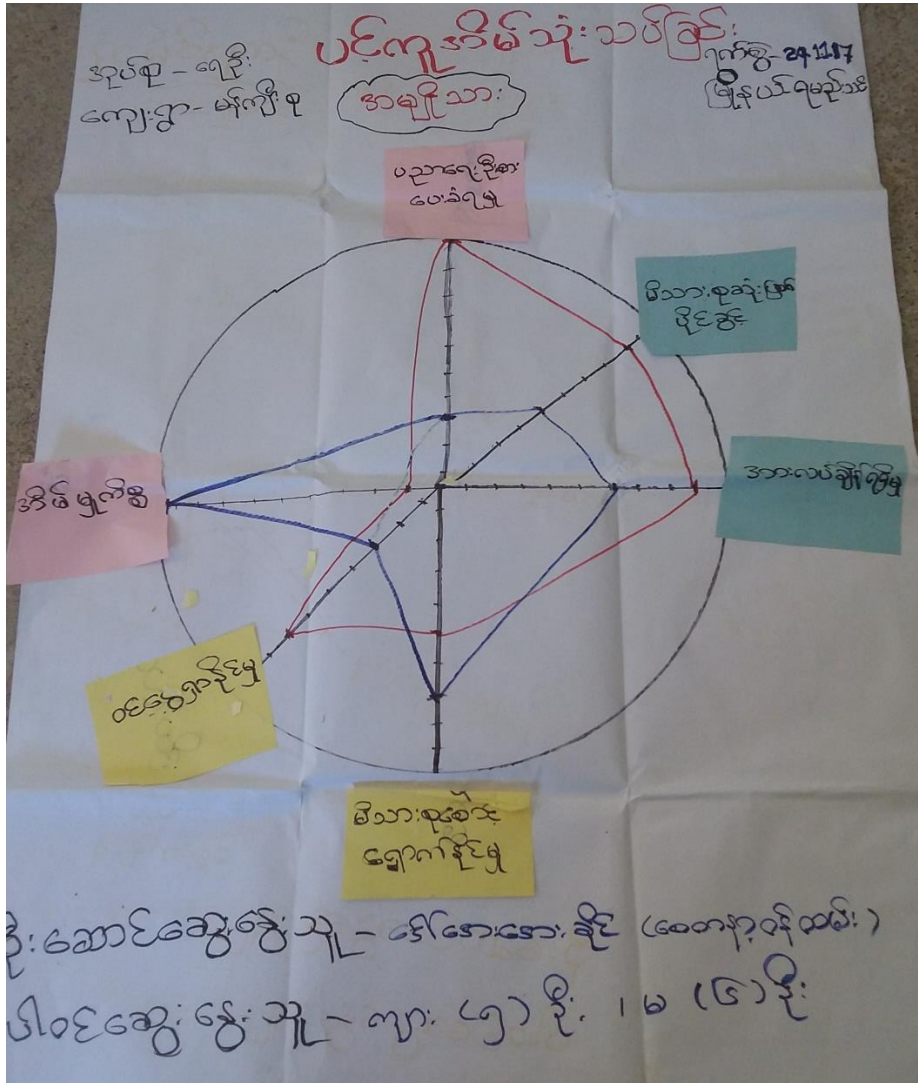 ပင့်ကူအိမ်သုံးသပ်ခြင်း
အုပ်စု - ရေဦး
ကျေးရွာ - မန်ကျီးစု
အမျိုးသား
ရက်စွဲ - 24.11.17
မြို့နယ်ရမည်းသင်း
ပညာရေးဦးစား
ပေးခံရမှု
မိသားစုဆုံးဖြတ်
ပိုင်ခွင့်
အိမ်မှုကိစ္စ
အားလပ်ချိန်ရရှိမှု
ဝင်ငွေရှာနိုင်မှု
မိသားစုစောင့်
ရှောက်နိုင်မှု
ဦးဆောင်ဆွေးနွေးသူ - ဒေါ်အေးအေးခိုင် (စေတနာ့ဝန်ထမ်း)
ပါဝင်ဆွေးနွေးသူ - ကျား (၅) ဦး ၊ မ (၆) ဦး